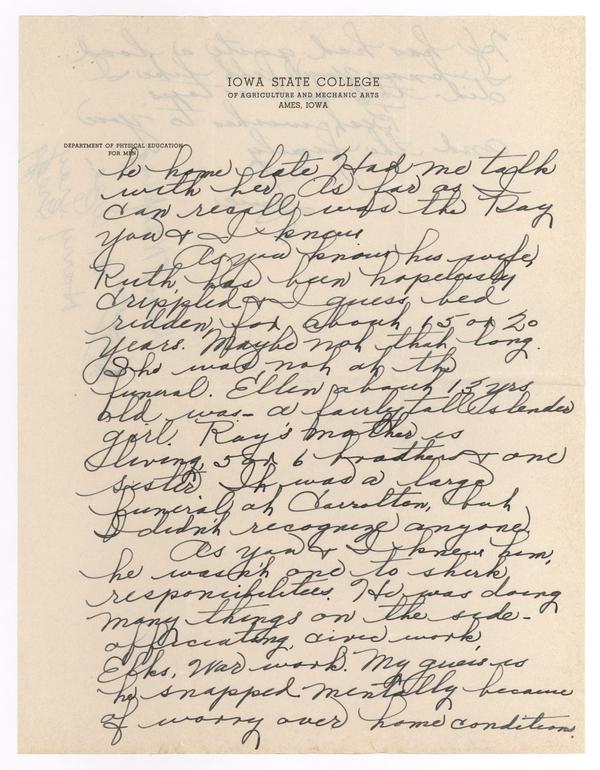 IOWA STATE COLLEGE
OF AGRICULTURE AND MECHANIC ARTS
AMES, IOWA
DEPARTMENT OF PHYSICAL EDUCATION
FOR MEN
be home late Had me talk
with her. As far as I
can recall was the Ray
you & I knew.
As you know his wife,
Ruth, has been hopelessly
crippled & I guess bed
ridden for about 15 or 20
years. Maybe not that long.
She was not at the
funeral. Ellen about 13 yrs
old was - a fairly tall slender
girl. Ray's mother is
living, 5 or 6 brothers & one
sister. It was a large
funeral at Carrolton, but
I didn't recognize anyone.
As you & I knew him,
he wasn't one to shirk
responsibilities. He was doing
many things on the side -
officiating, civic work
Elks, War work. My guess is
he snapped mentally because
of worry over home conditions.